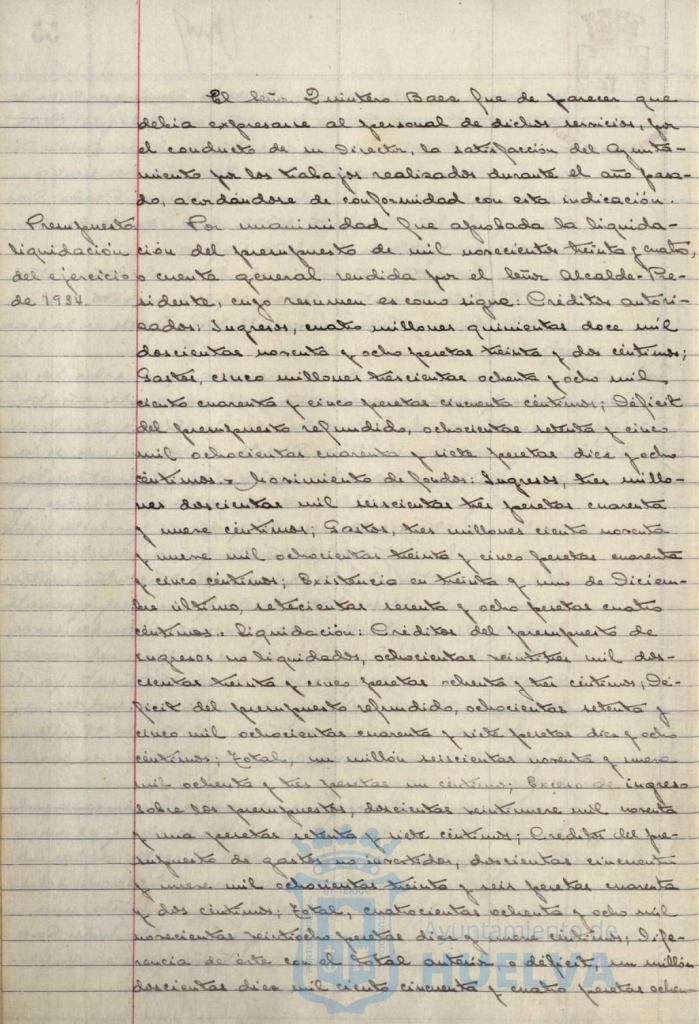 El Señor Quintero Baez fue de parecer que
debía expresarse al personal de dichos servicios, por
el conducto de su Director, la satisfacción del Ayunta-
miento por los trabajos realizados durante el año pasa-
do, acordándose de conformidad con esta indicación.
Presupuesto
liquidación
del ejercicio
de 1934.
Por unanimidad fue aprobada la liquida-
ción del presupuesto de mil novecientos treinta y cuatro,
o cuenta general rendida por el Señor Alcalde-Pre-
sidente, cuyo resumen es como sigue: Créditos autori-
zados: Ingresos, cuatro millones quinientas doce mil
doscientas noventa y ocho pesetas treinta y dos céntimos;
Gastos, cinco millones trescientas ochenta y ocho mil
ciento cuarenta y cinco pesetas cincuenta céntimos; Déficit
del presupuesto refundido, ochocientas setenta y cinco
mil ochocientas cuarenta y siete pesetas diez y ocho
céntimos.- Movimiento de fondos: Ingresos, tres millo-
nes doscientas mil seiscientas tres pesetas cuarenta
y nueve céntimos; Gastos, tres millones ciento noventa
y nueve mil ochocientas treinta y cinco pesetas cuarenta
y cinco céntimos; Existencia en treinta y uno de Diciem-
bre último, setecientas sesenta y ocho pesetas cuatro
céntimos.- Liquidación: Créditos del presupuesto de
ingresos no liquidados, ochocientas veintitres mil dos-
cientas treinta y cinco pesetas ochenta y tres céntimos; Dé-
ficit del presupuesto refundido, ochocientas setenta y
cinco mil ochocientas cuarenta y siete pesetas diez y ocho
céntimos; Total, un millón seiscientas noventa y nueve
mil ochenta y tres pesetas un céntimo; Exceso de ingreso
sobre los presupuestos, doscientas veintinueve mil noventa
y una pesetas setenta y siete céntimos; Créditos del pre-
supuesto de gastos no invertidos, doscientas cincuenta
y nueve mil ochocientas treinta y seis pesetas cuarenta
y dos céntimos; Total, cuatrocientas ochenta y ocho mil
novecientas veintiocho pesetas diez y nueve céntimos; Dife-
rencia de éste con el total anterior, o déficit, un millón
doscientas diez mil ciento cincuenta y cuatro pesetas ochen-
Ayuntamiento de
HUELVA